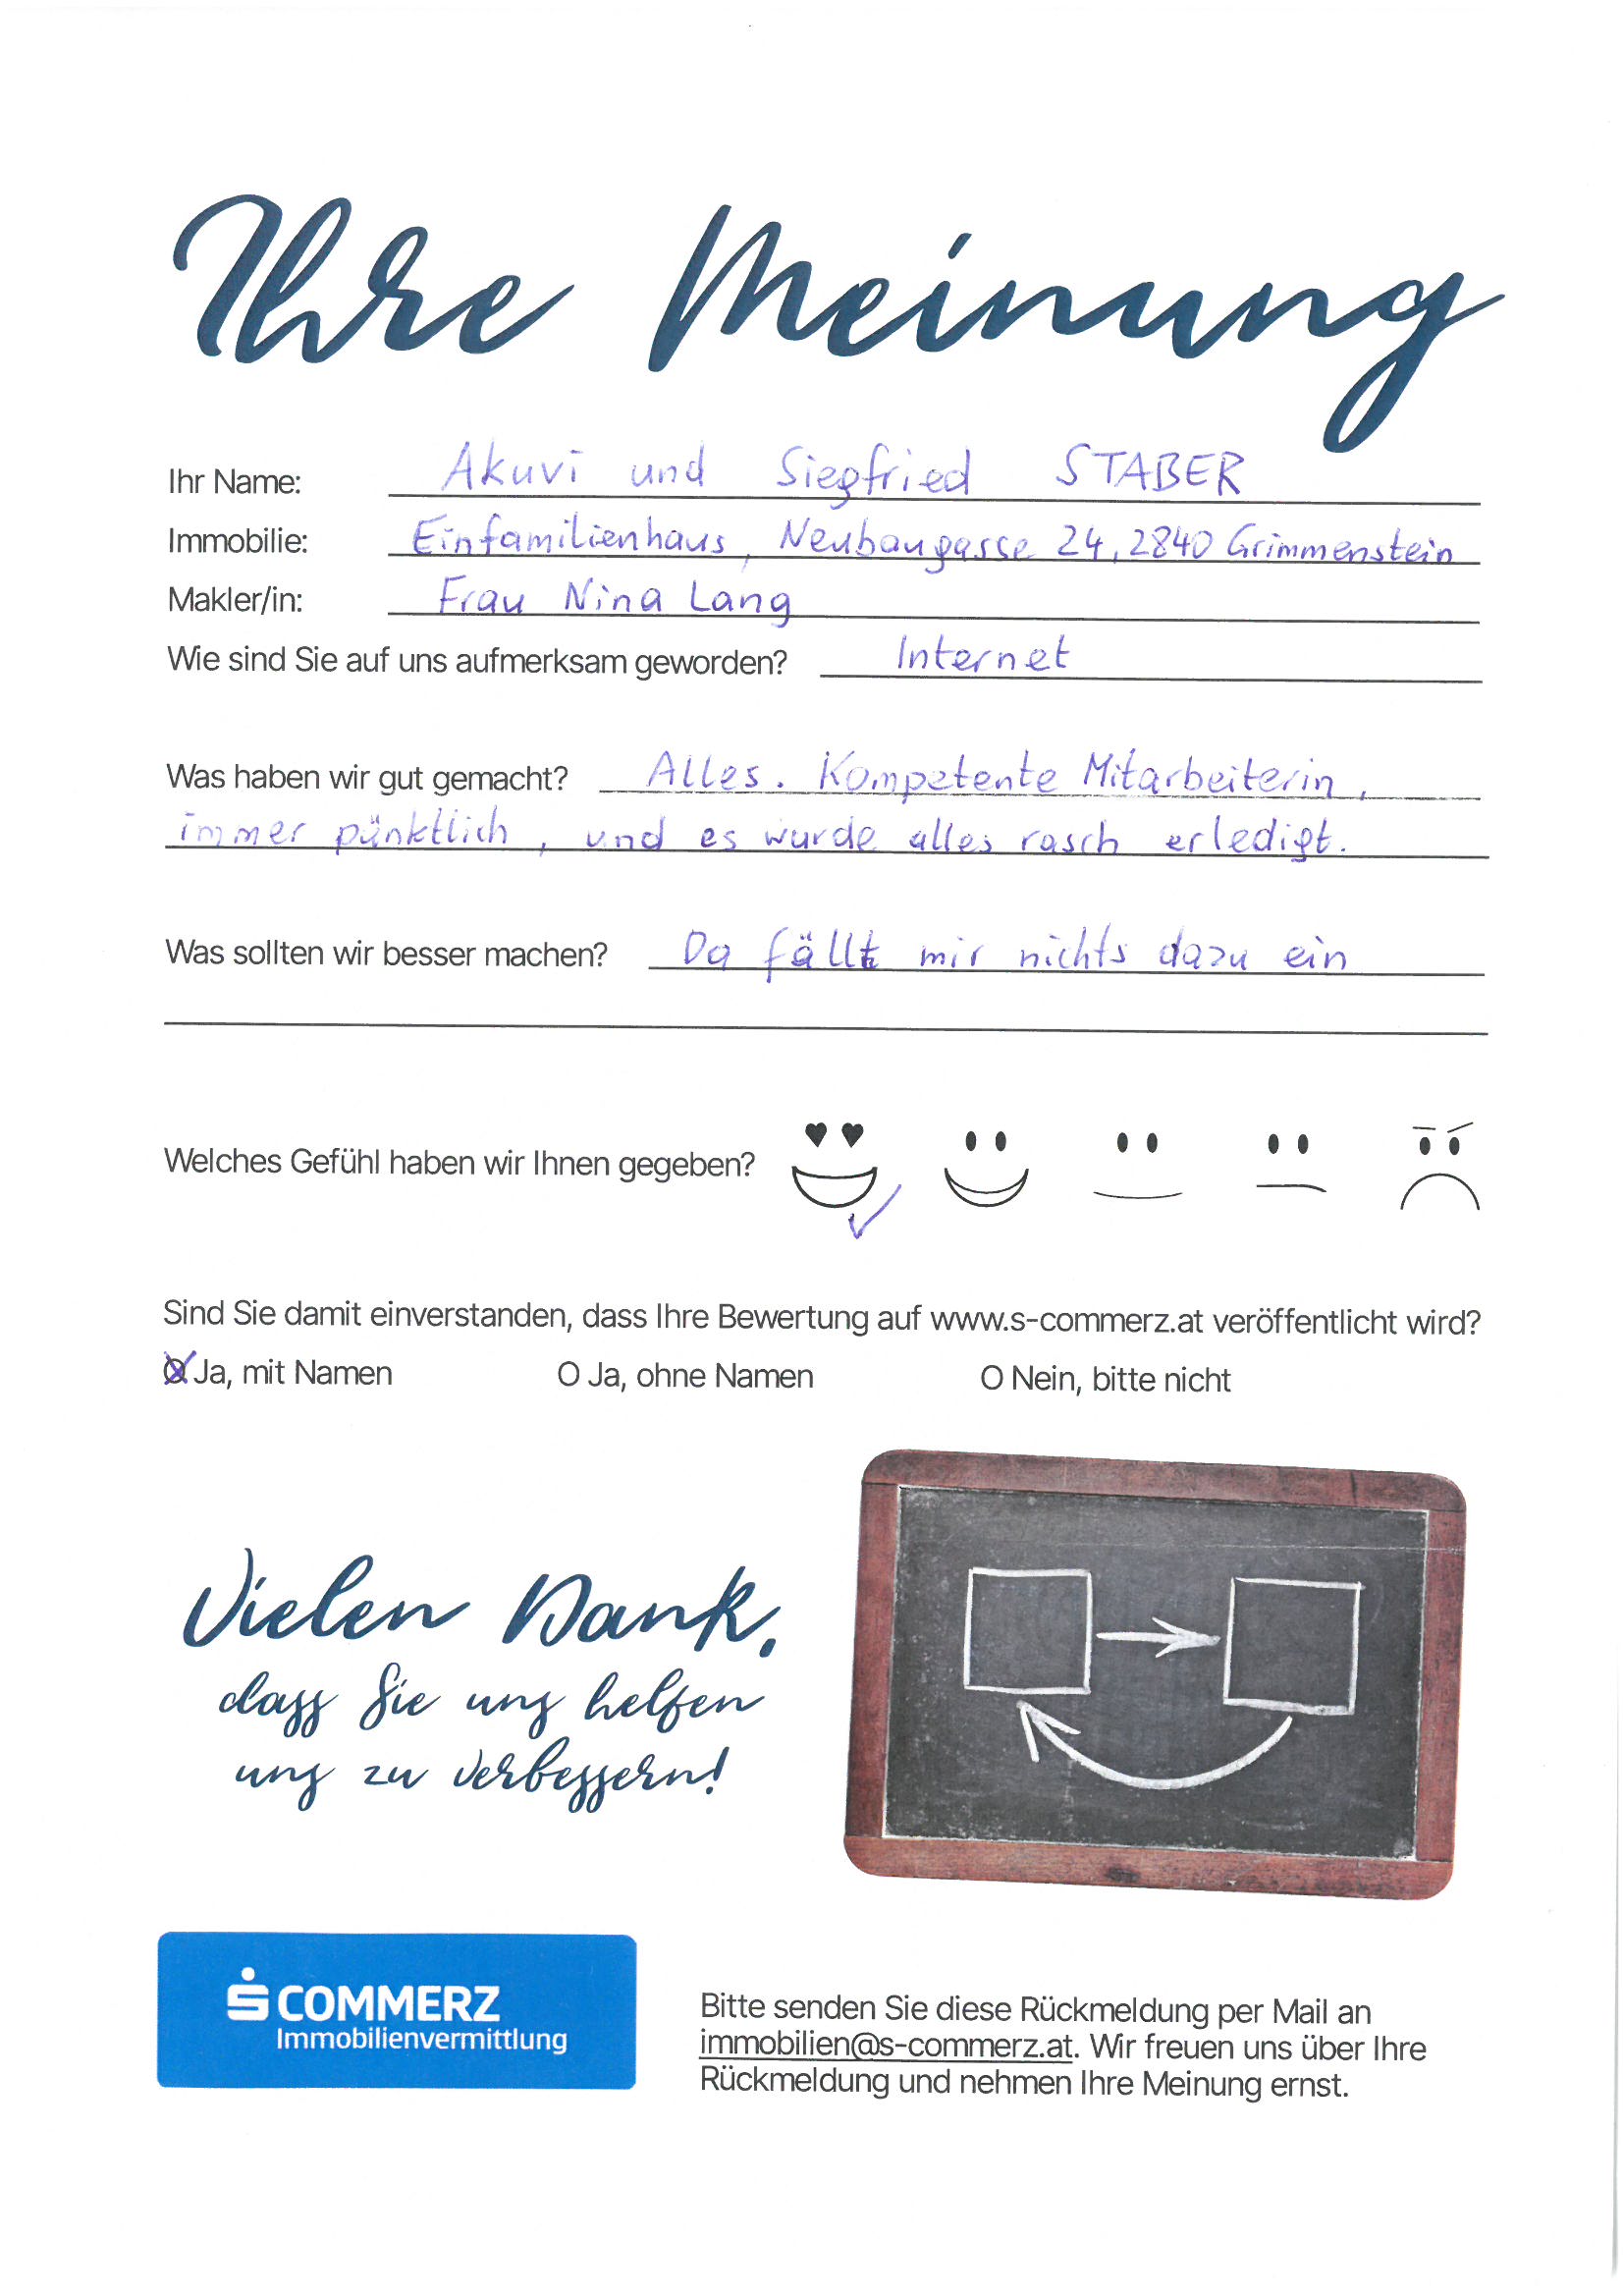 Ihre Meinung
Ihr Name: Akuvi und Siegfried STABER
Immobilie: Einfamilienhaus, Neubaugasse 24, 2840 Grimmenstein
Makler/in: Frau Nina Lang
Wie sind Sie auf uns aufmerksam geworden? Internet
Was haben wir gut gemacht? Alles. Kompetente Mitarbeiterin,
immer pünktlich, und es wurde alles rasch erledigt.
Was sollten wir besser machen? Da fällt mir nichts dazu ein
Welches Gefühl haben wir Ihnen gegeben?
Sind Sie damit einverstanden, dass Ihre Bewertung auf www.s-commerz.at veröffentlicht wird?
O Ja, mit Namen O Ja, ohne Namen O Nein, bitte nicht
Vielen Dank,
dass Sie uns helfen
uns zu verbessern!
S COMMERZ
Immobilienvermittlung
Bitte senden Sie diese Rückmeldung per Mail an
immobilien@s-commerz.at. Wir freuen uns über Ihre
Rückmeldung und nehmen Ihre Meinung ernst.